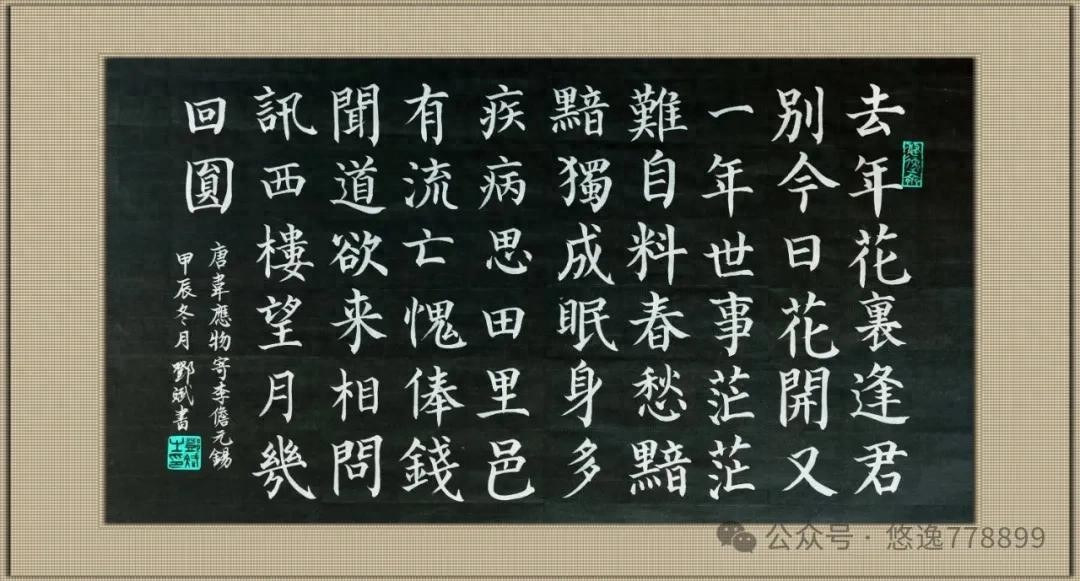 去年花裏逢君
別今日花開又
一年世事茫茫
難自料春愁黯
黯獨成眠身多
疾病思田里邑
有流亡愧俸錢
聞道欲来相問
訊西樓望月幾
回圓
唐韋應物寄李儋元錫
甲辰冬月鄧斌書
公众号·悠逸778899